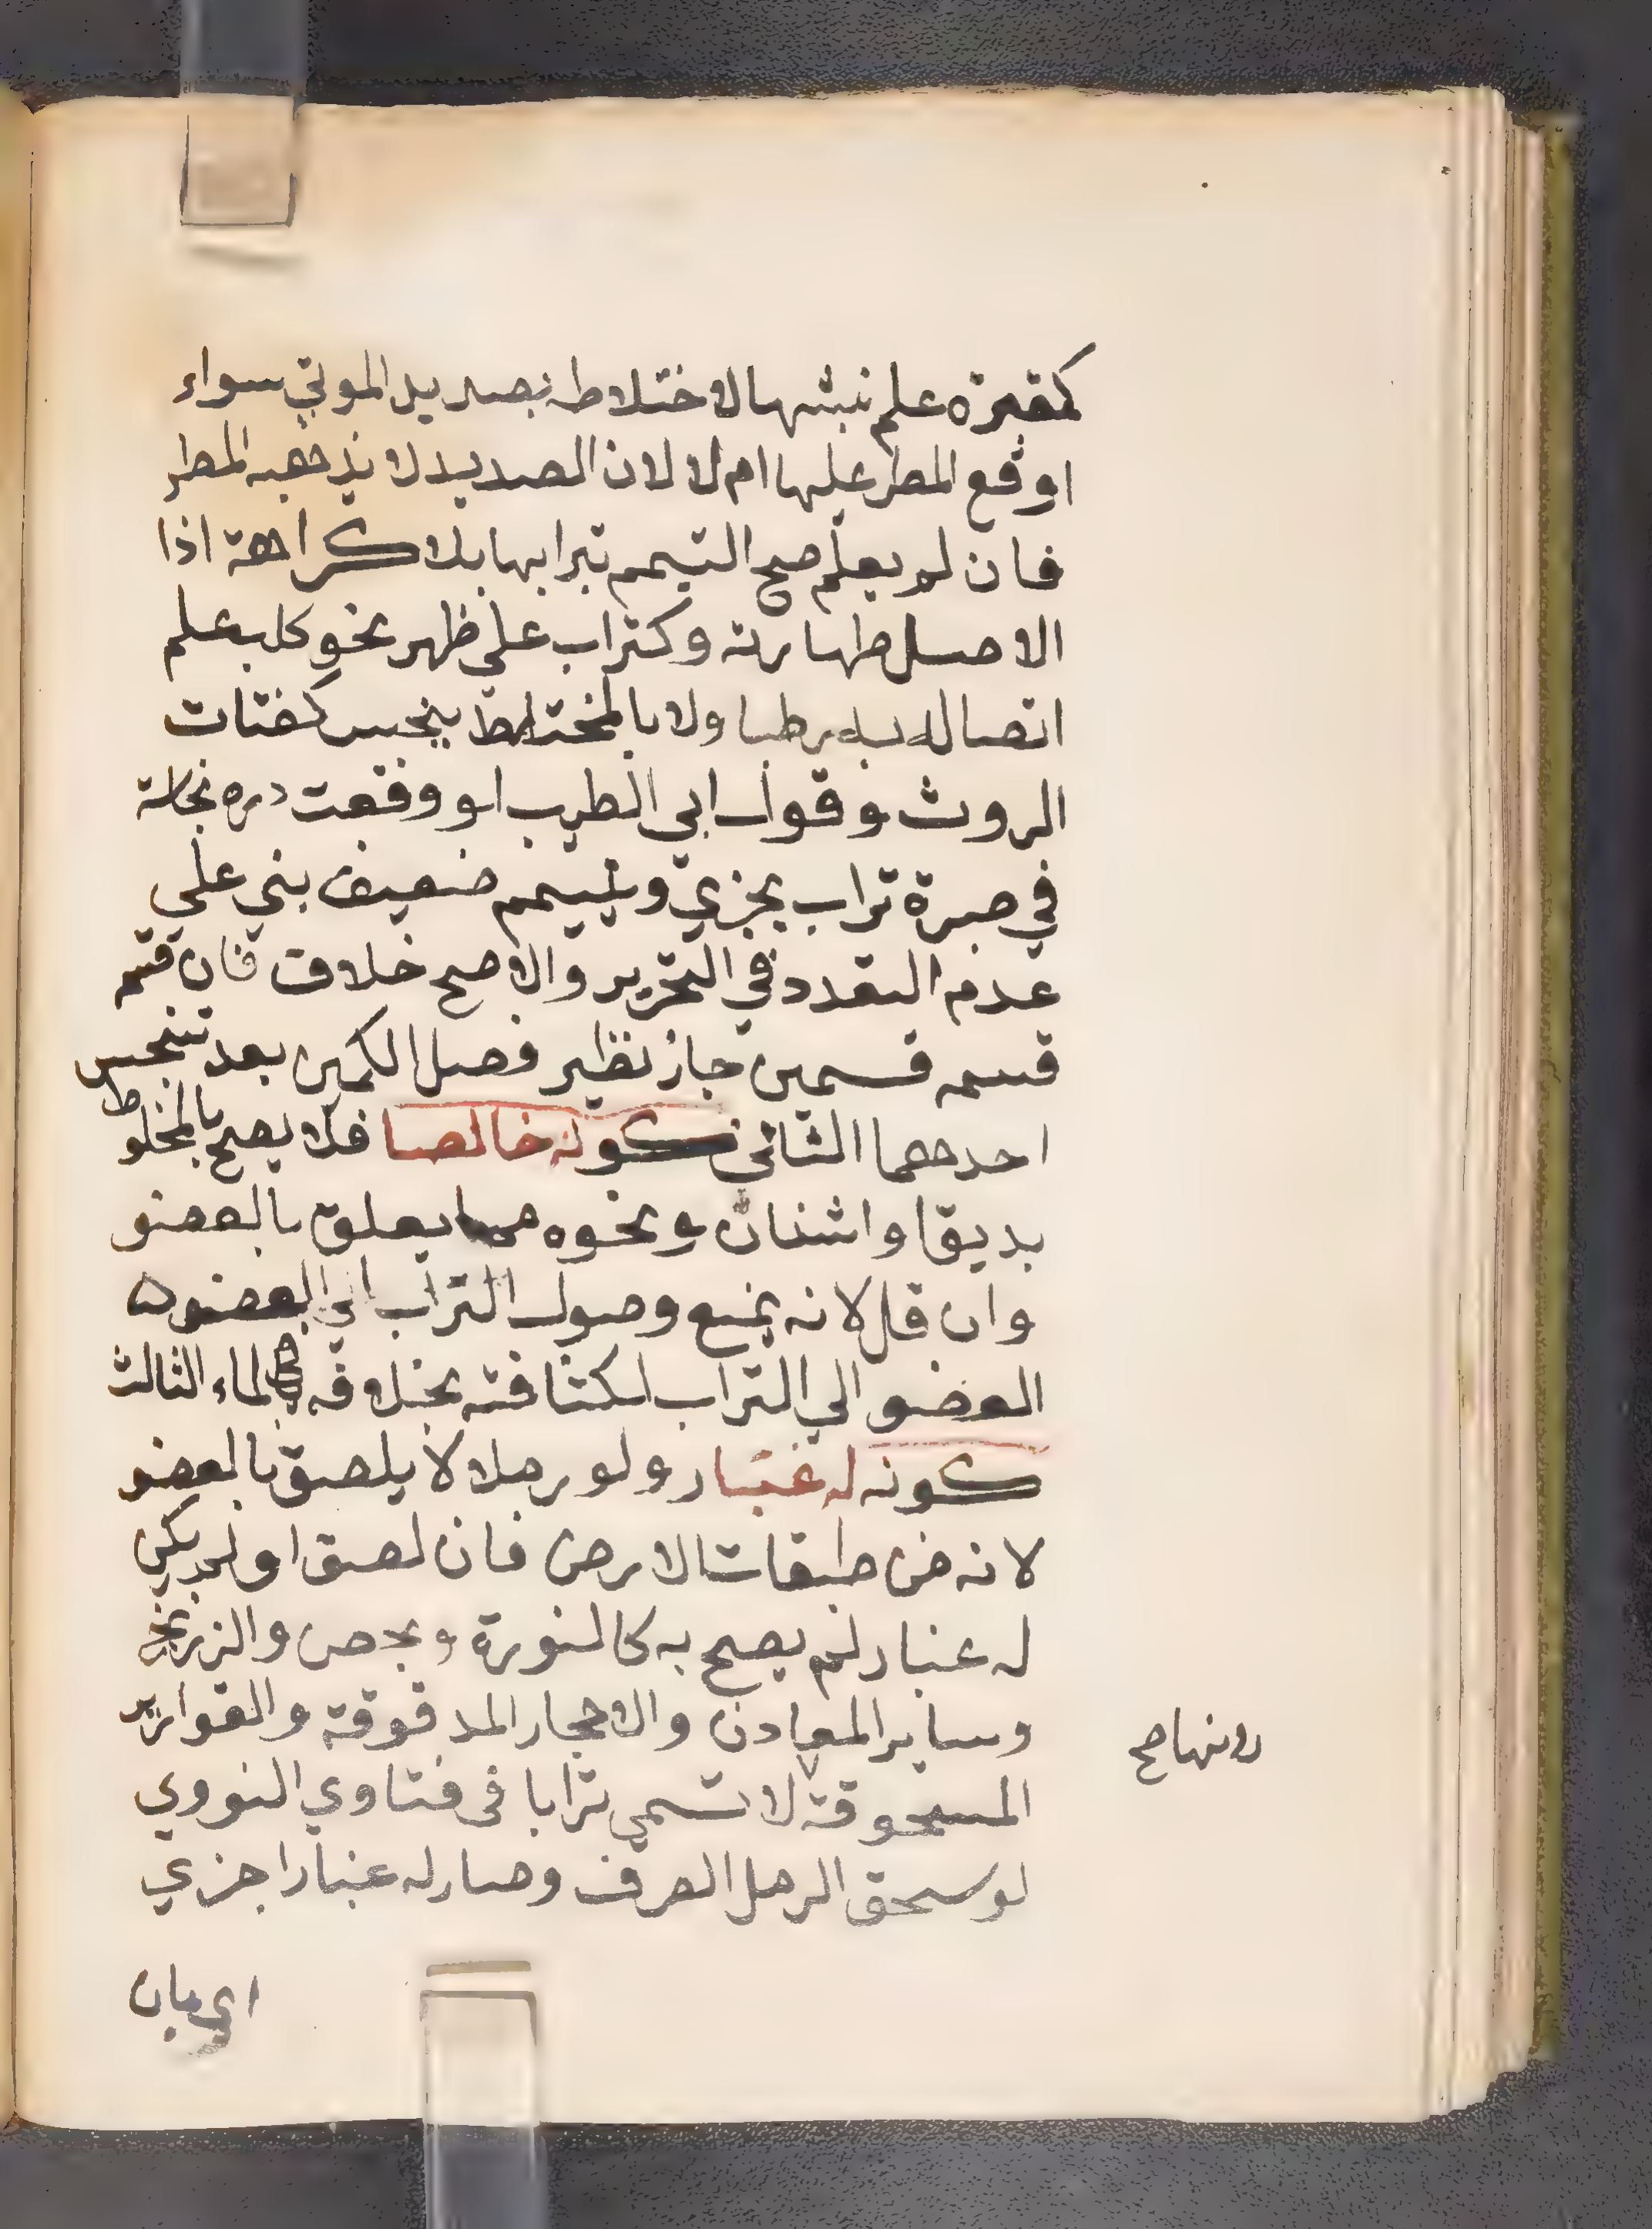 كمقبرة علم نبشها لاختلاطه بصديد الموتي سواء
اوقع المطر عليها ام لا لان الصديد لا يذهبه المطر
فان لم يعلم صح التيمم بترابها بلا كراهة اذا
الاصل طهارته وكتراب علي ظهر نحو كلب علم
اتصاله به رطبا ولا بالمختلط بنجس كفتات
الروث وقول ابي الطيب لو وقعت ذره نجاسة
في صبرة تراب يجزي ويتيمم ضعيف بني علي
عدم التعدد في التحري والاصح خلاف فان قسم
قسمه قسمين جاز نظير فصل الكمين بعد تنجس
احدهما الثاني كونه خالصا فلا يصح بالمخلوط
بديقا واشنان ونحوه مما يعلق بالعضو
وان قل لانه يمنع وصول التراب الي العضو
العضو الي التراب لكثافته بخلافه الماء الثالث
كونه له غبار ولو رملا لا يلصق بالعضو
لانه من طبقات الارض فان لصق او لم يكن
له غبار لم يصح به كالنورة وبجص والزرنيخ
وساير المعادن والاحجار المدقوقة والقوارير
المسحوقة لا تسمي ترابا فى فتاوي النووي
لو سحق الرمل الصرف وصار له غبارا جزي
اي بان